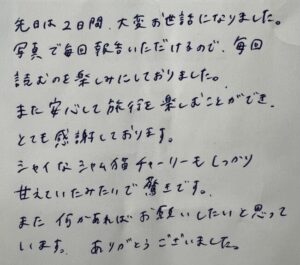 先日は2日間、大変お世話になりました。
写真で毎回報告いただけるので、毎回
読むのを楽しみにしておりました。
また安心して旅行を楽しむことができ、
とても感謝しております。
シャイなシャム猫チャーリーもしっかり
甘えていたみたいで驚きです。
また何かあればお願いしたいと思って
います。ありがとうございました。